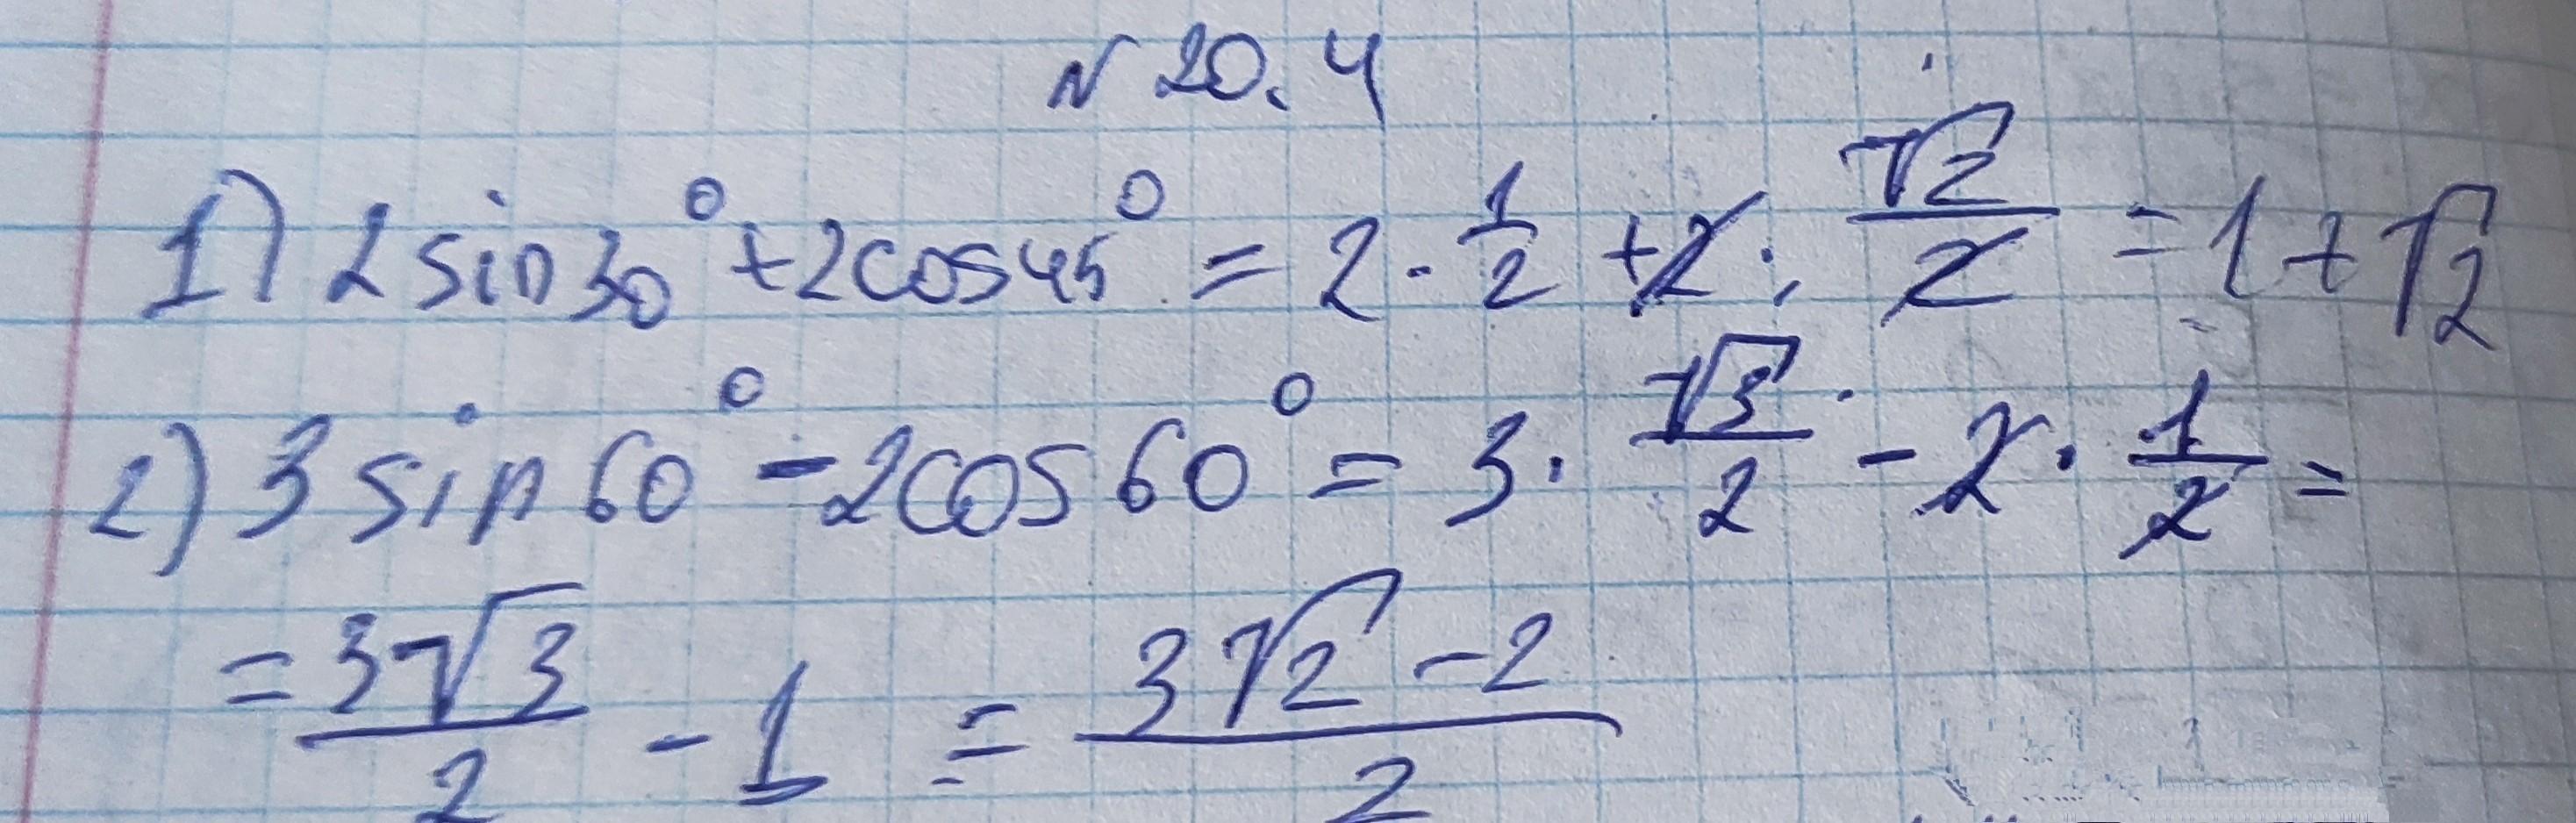 N 20.4
1) 2 sin 30° + 2 cos 45° = 2 · 1/2 + 2 · √2/2 = 1 + √2
2) 3 sin 60° - 2 cos 60° = 3 · √3/2 - 2 · 1/2 =
= 3√3/2 - 1 = (3√2 - 2)/2